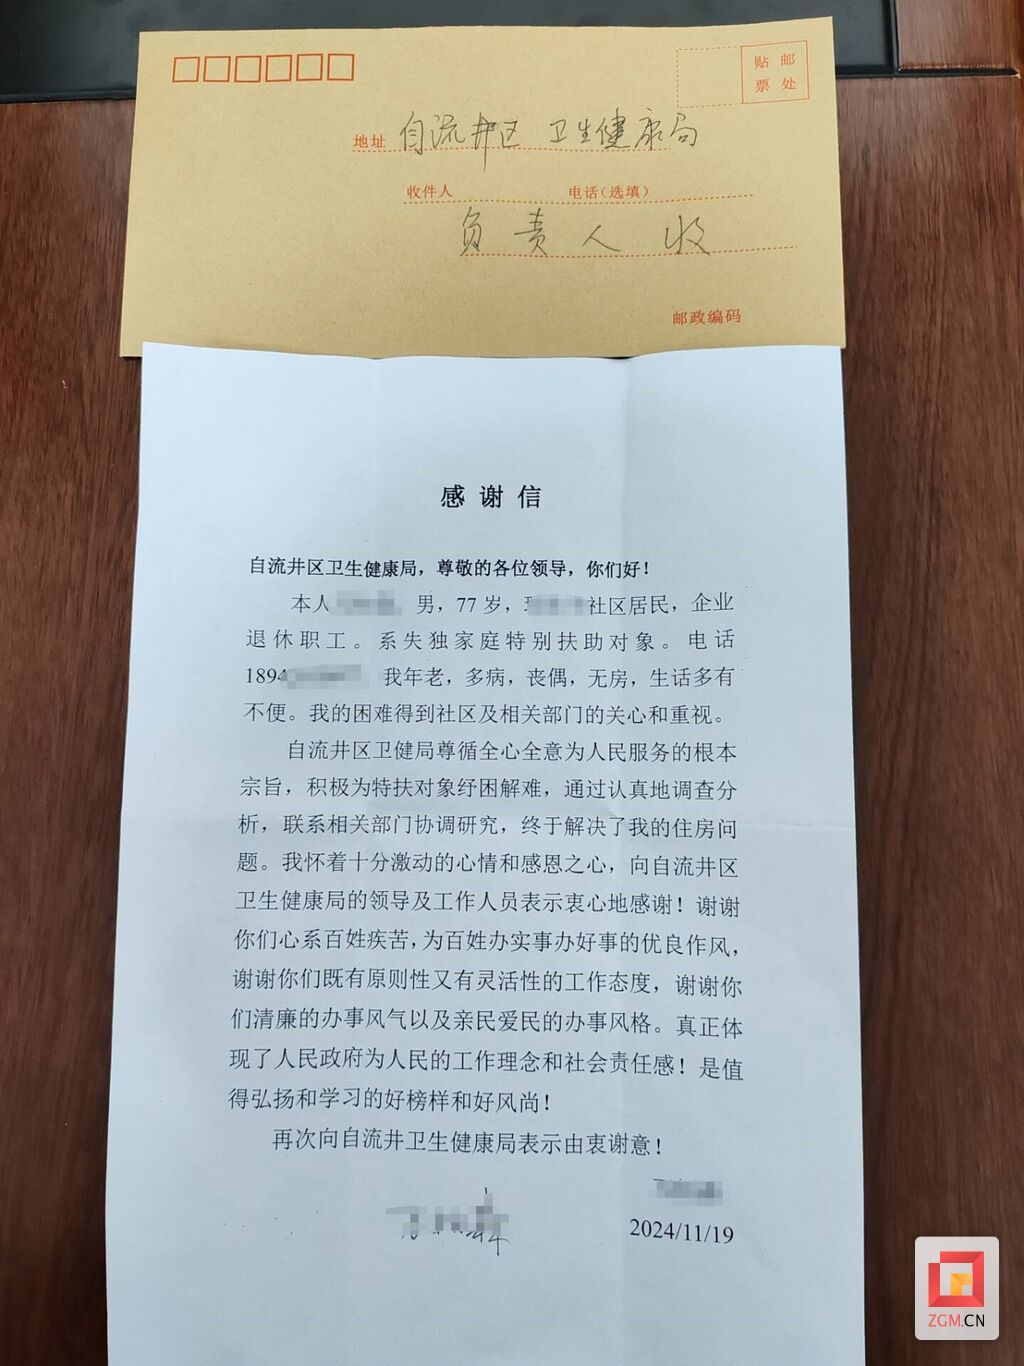 贴 邮
票 处
地址 自流井区 卫生健康局
收件人 电话(选填)
负责人 收
邮政编码
感谢信
自流井区卫生健康局，尊敬的各位领导，你们好！
本人 男，77岁， 社区居民，企业
退休职工。系失独家庭特别扶助对象。电话
1894 我年老，多病，丧偶，无房，生话多有
不便。我的困难得到社区及相关部门的关心和重视。
自流井区卫健局尊循全心全意为人民服务的根本
宗旨，积极为特扶对象纾困解难，通过认真地调查分
析，联系相关部门协调研究，终于解决了我的住房问
题。我怀着十分激动的心情和感恩之心，向自流井区
卫生健康局的领导及工作人员表示衷心地感谢！谢谢
你们心系百姓疾苦，为百姓办实事办好事的优良作风，
谢谢你们既有原则性又有灵活性的工作态度，谢谢你
们清廉的办事风气以及亲民爱民的办事风格。真正体
现了人民政府为人民的工作理念和社会责任感！是值
得弘扬和学习的好榜样和好风尚！
再次向自流井卫生健康局表示由衷谢意！
2024/11/19
ZGM.CN